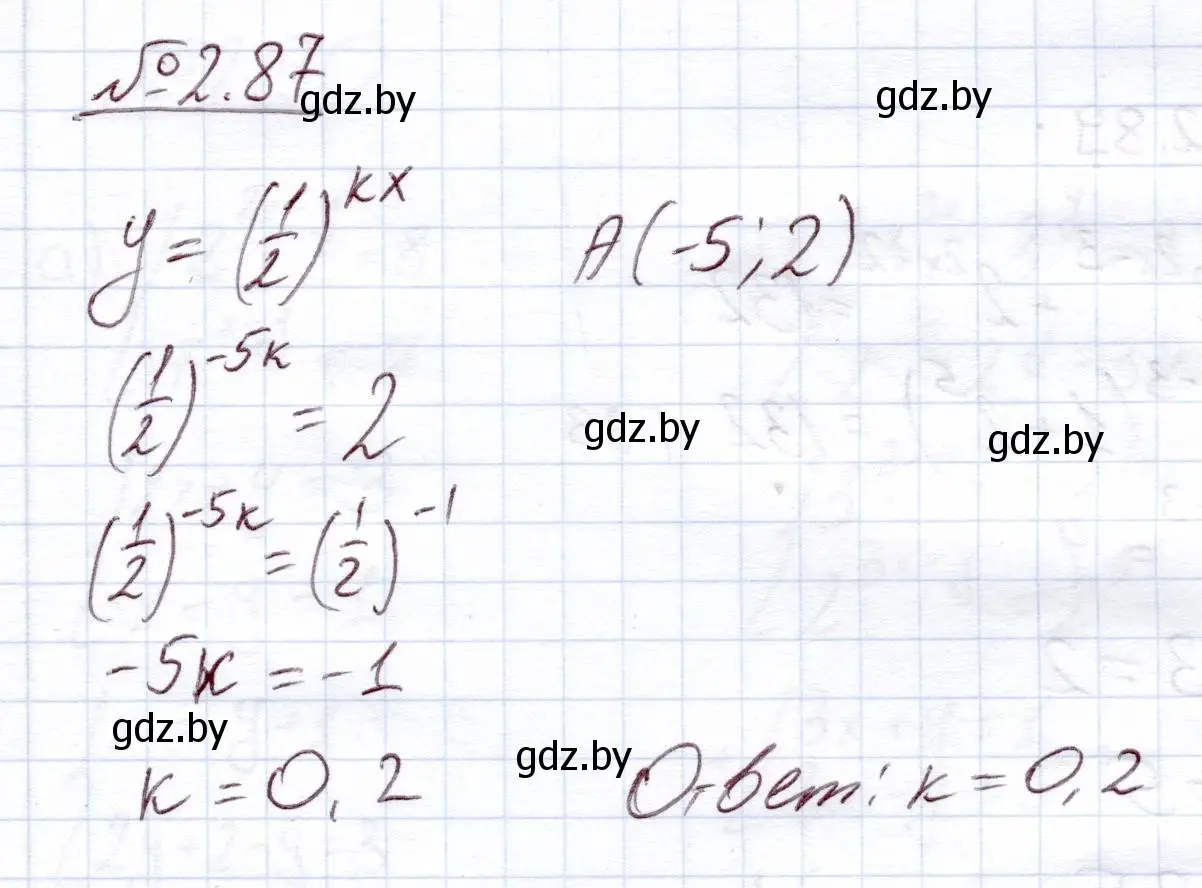 №2.87
gdz.by
gdz.by
y = (1/2)^kx A(-5; 2)
(1/2)^-5k = 2
gdz.by
gdz.by
(1/2)^-5k = (1/2)^-1
-5k = -1
gdz.by
gdz.by
k = 0,2 Ответ: k = 0,2